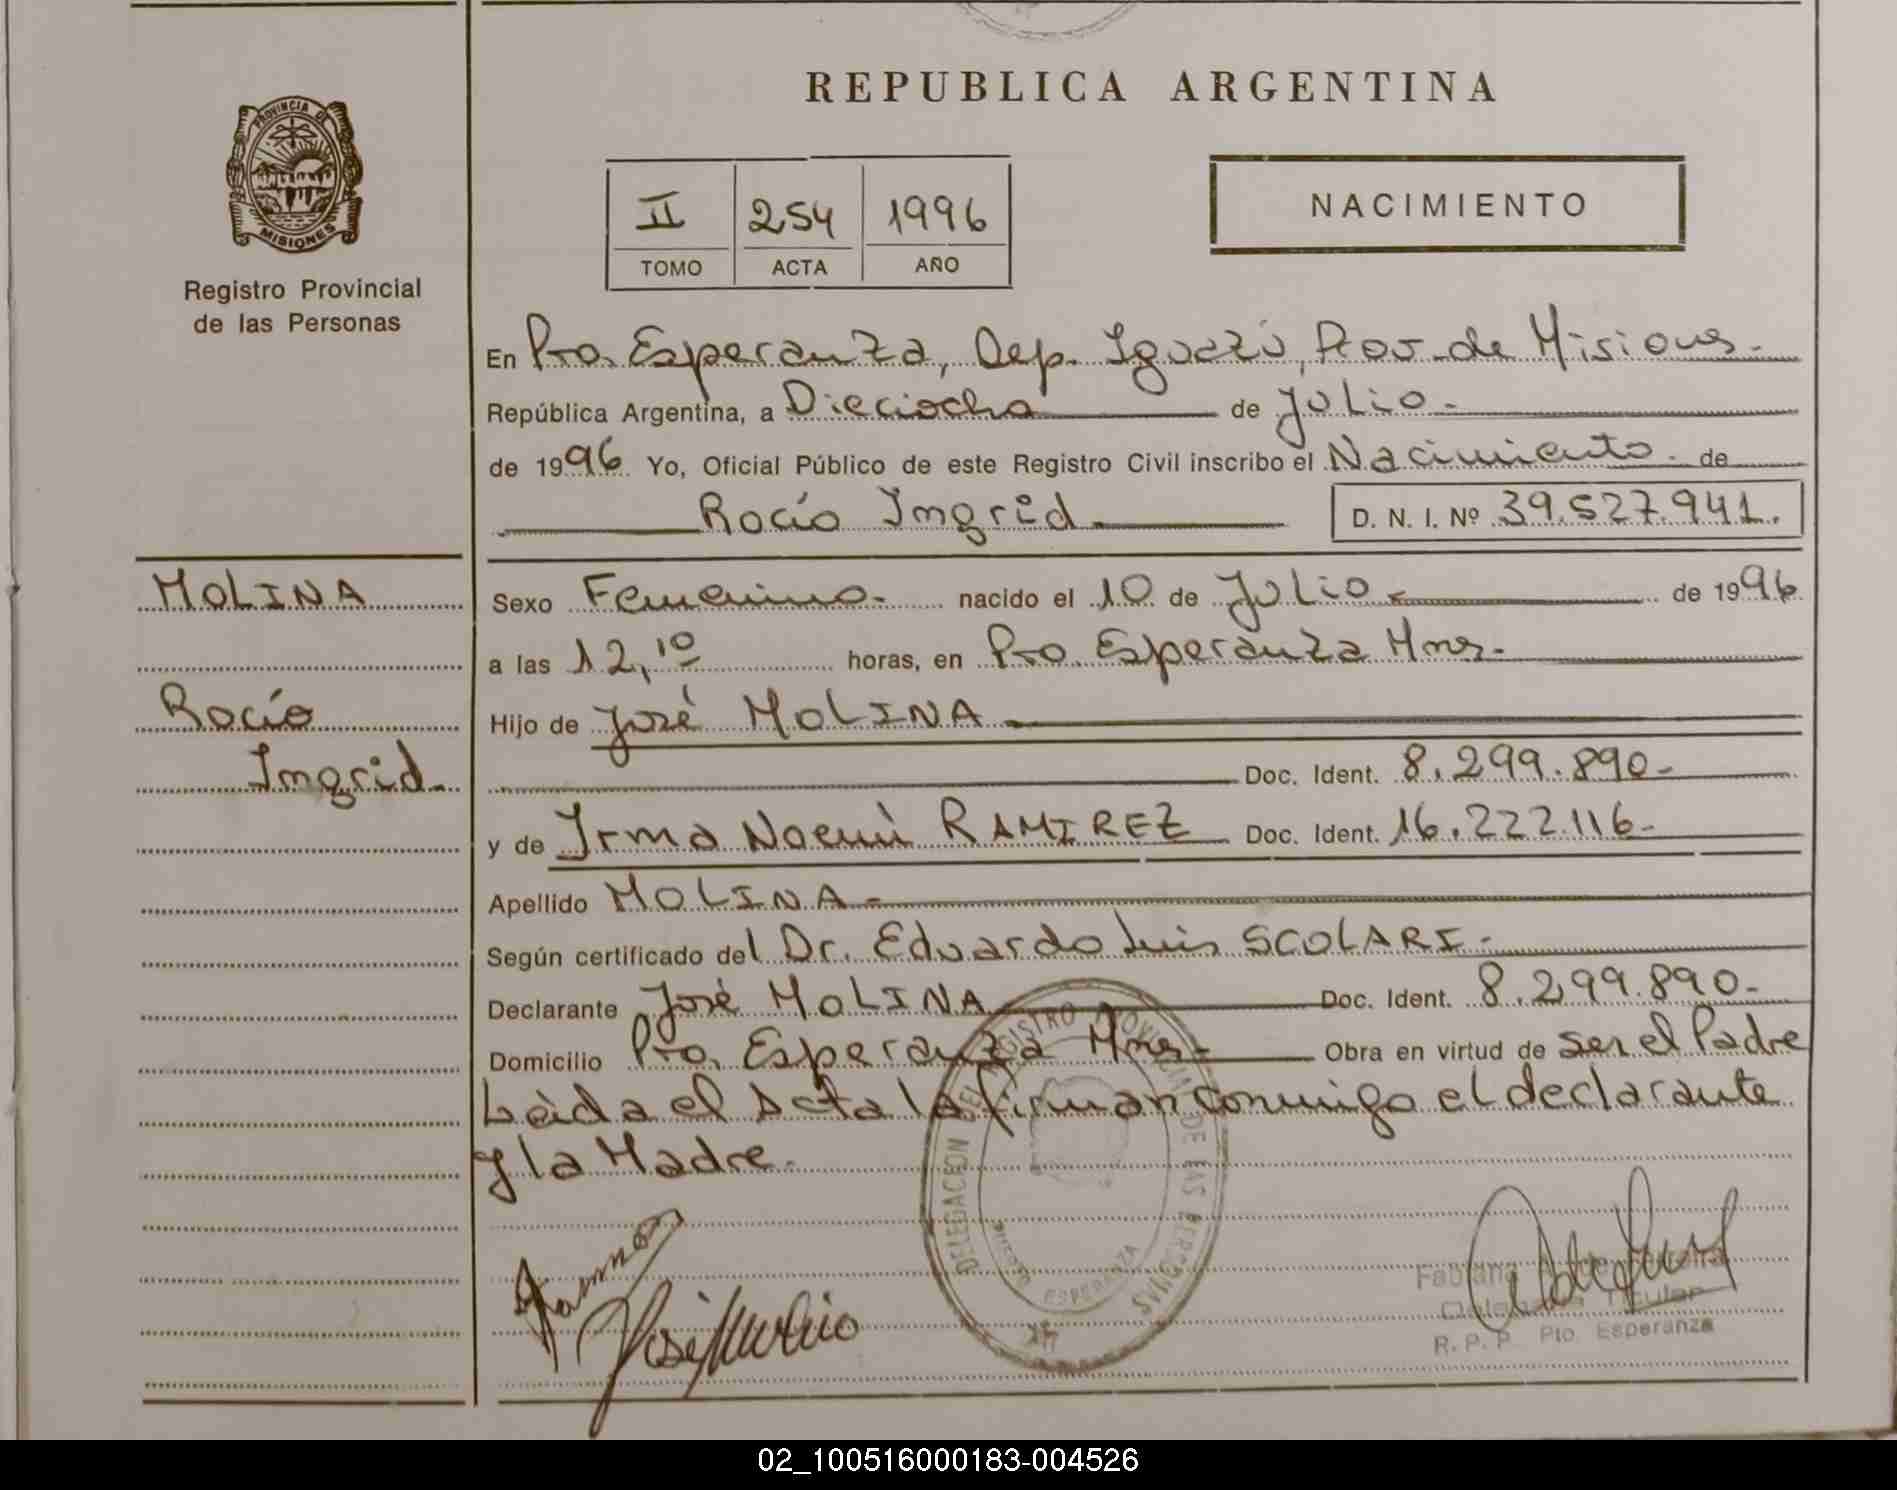 REPUBLICA ARGENTINA
PROVINCIA DE
MISIONES
Registro Provincial
de las Personas
II 254 1996
TOMO ACTA AÑO
NACIMIENTO
En Pto. Esperanza, Dep. Iguazú, Prov. de Misiones.
República Argentina, a Dieciocho de Julio.
de 1996 Yo, Oficial Público de este Registro Civil inscribo el Nacimiento. de
Rocío Ingrid. D. N. I. Nº 39.527.941.
MOLINA
Rocío
Ingrid.
Sexo Femenino. nacido el 10 de Julio. de 1996
a las 12,10 horas, en Pto. Esperanza Mnes.
Hijo de José MOLINA.
Doc. Ident. 8.299.890-
y de Irma Noemí RAMIREZ Doc. Ident. 16.222.116-
Apellido MOLINA-
Según certificado del Dr. Eduardo Luis SCOLARI-
Declarante José MOLINA Doc. Ident. 8.299.890-
Domicilio Pto. Esperanza Mnes- Obra en virtud de ser el Padre
Leída el Acta la firman conmigo el declarante
y la Madre.
DELEGACION DEL REGISTRO PROVINCIAL DE LAS PERSONAS
PUERTO ESPERANZA
José Molina
Fabiana
Delegada Titular
R. P. P. Pto. Esperanza
02_100516000183-004526